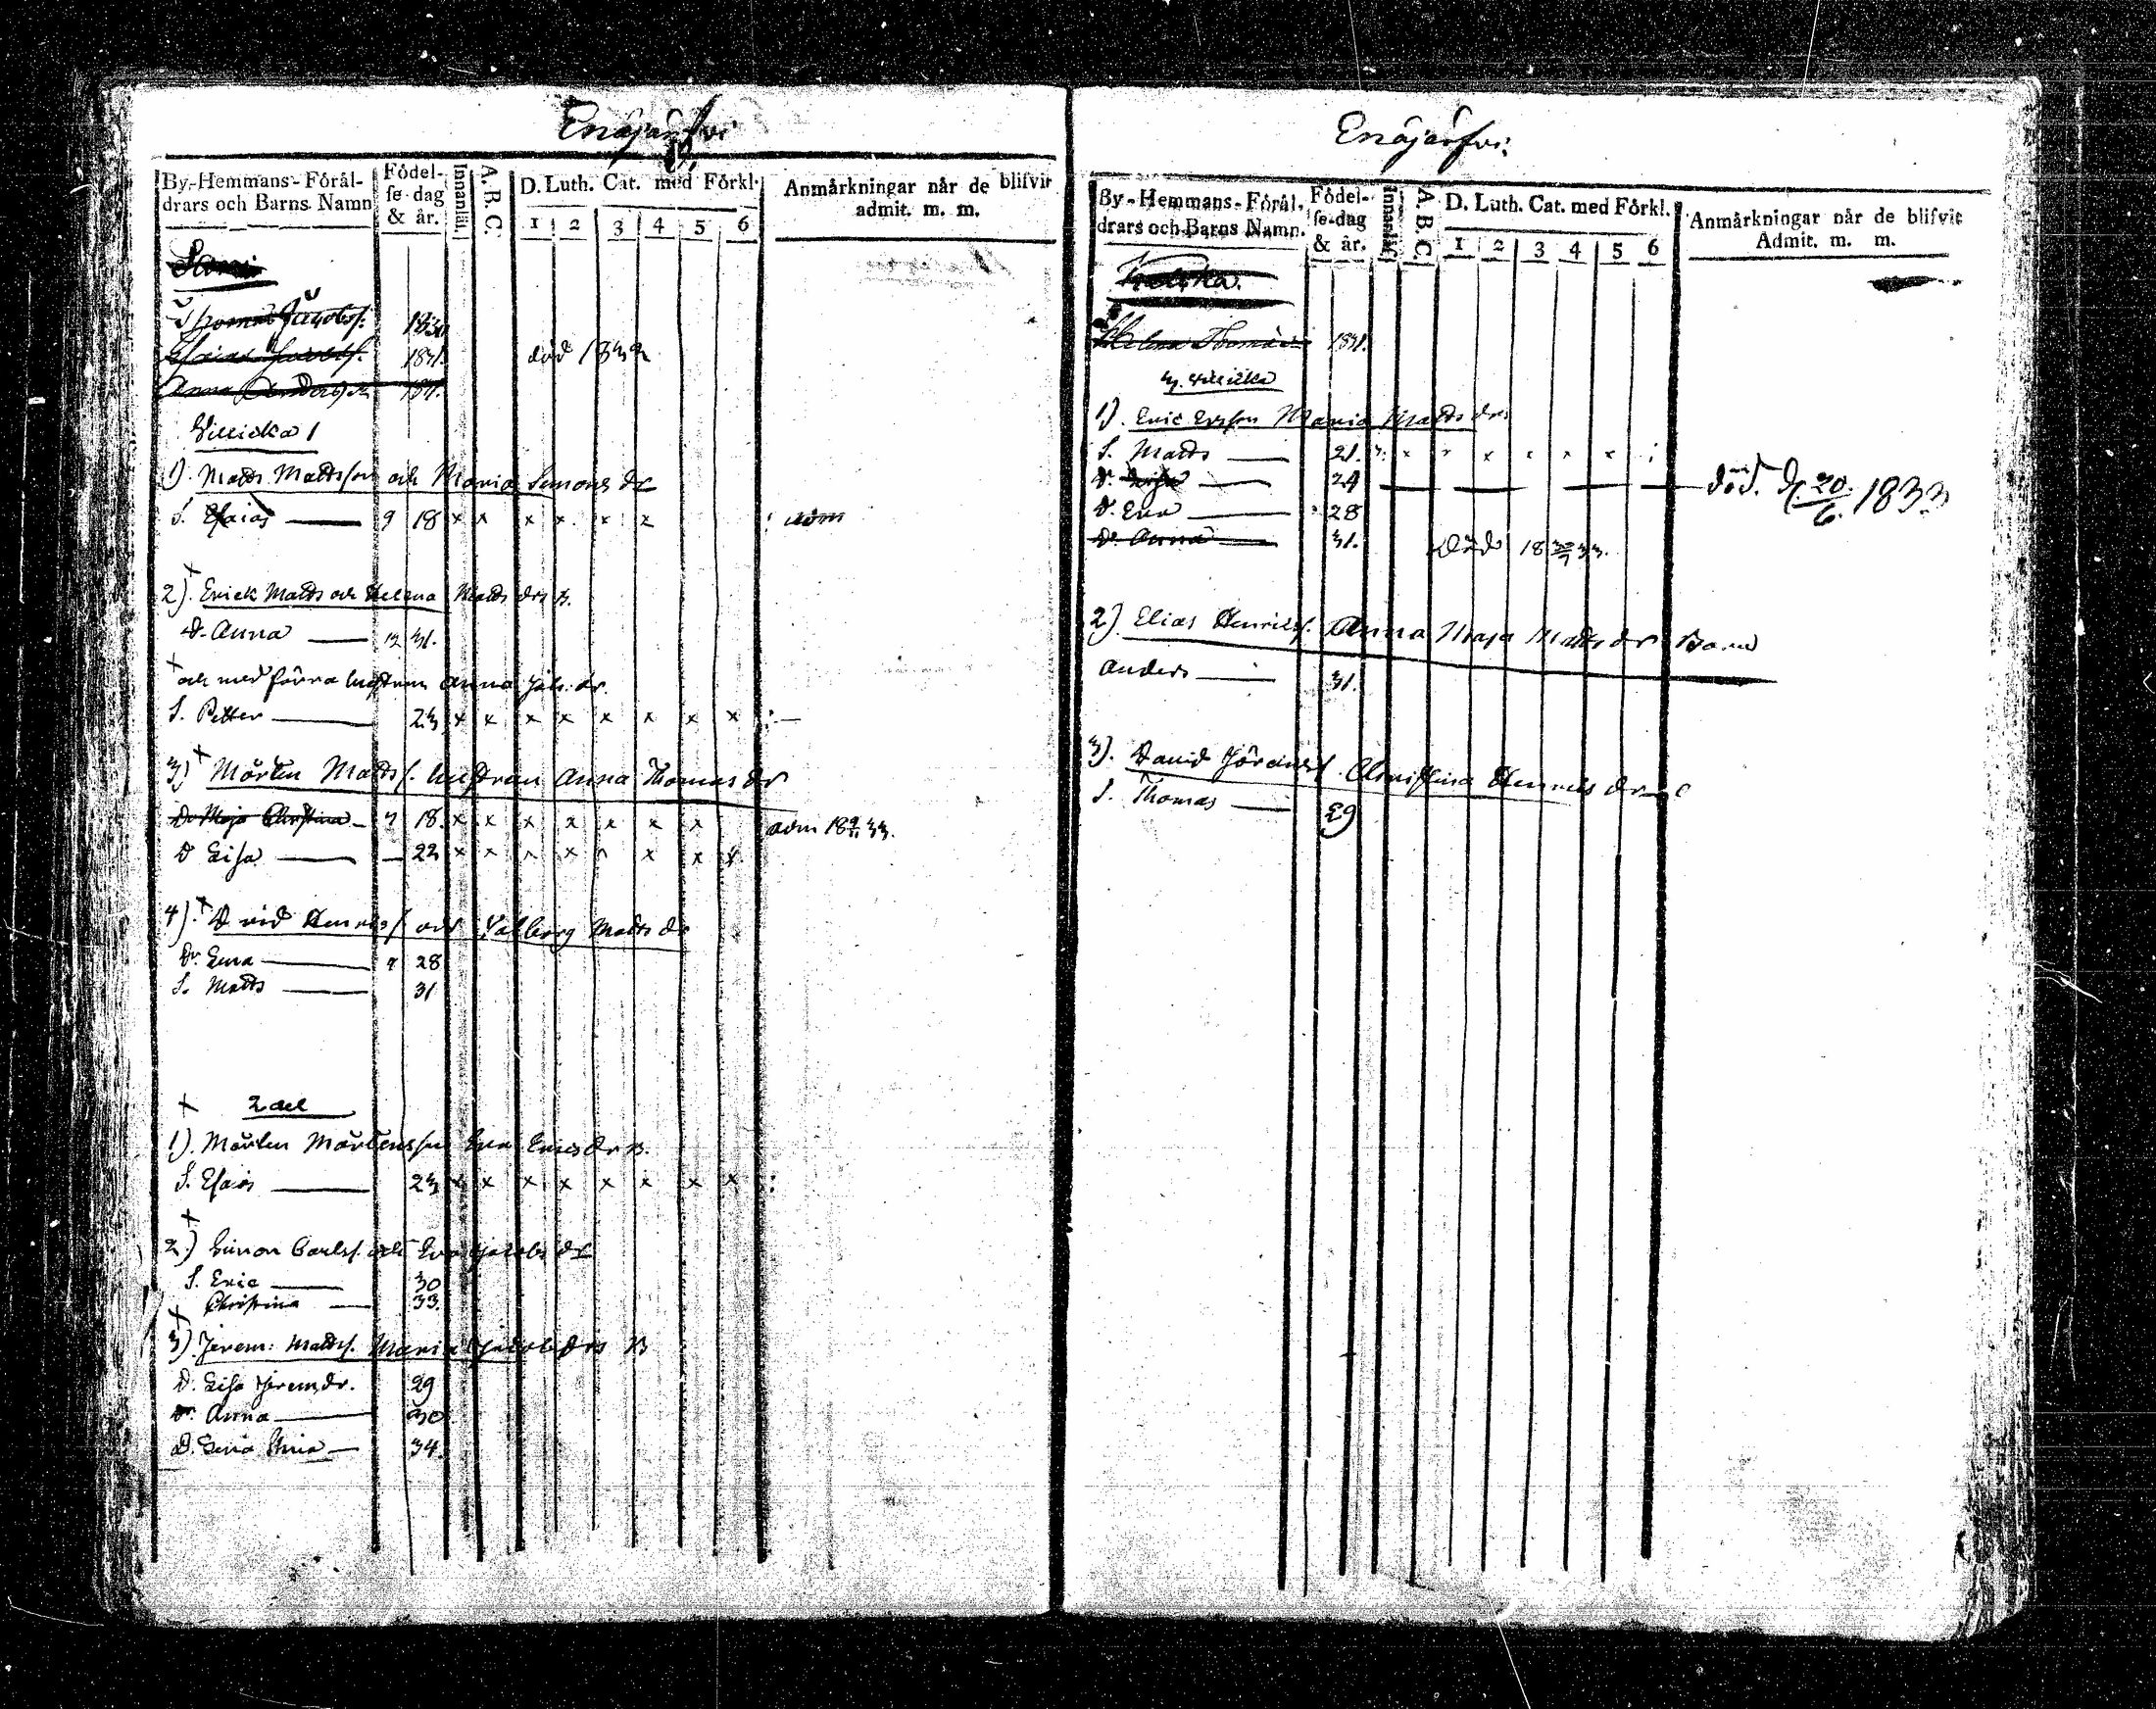 Enäjärfvi
By-Hemmans-Föräl-
drars och Barns Namn
Födel-
se-dag
& år.
Innanläs.
A. B. C.
D. Luth. Cat. med Förkl.
1 2 3 4 5 6
Anmärkningar när de blifvit
admit. m. m.
Jacobss. 1830
Esaias 1831. död 1832
Anna Andersdr 1831.
1). Matts Mattsson och Maria Simons dr
S. Esaias 9 18 x x x x x x adm
2). Erick Matts och Helena Matts drs B.
D. Anna 12 31.
och med förra hustrun Anna Joh. dr.
S. Petter 23 x x x x x x x x
3) Mårten Matts s. hustrun Anna Thomas dr
D. Maja Christina 7 18. x x x x x x x adm
D Lisa 22 x x x x x x x x
4). Henrics s. och Valborg Matts dr
Dr. 28
S. Matts 31
2 del
1). Mårten Mårtensson Eva Erics dr B.
S. Esaias 23 x x x x x x x x
2.) Simon Carlss. och Eva Jacobs dr
S. Eric 30
Christina 33.
3). Jerem: Mattss. Maria Jacobs drs B
D. Lisa Jerem. dr. 29
Dr. Anna 30
D. Stina 34.
Enäjärfvi
By-Hemmans-Föräl-
drars och Barns Namn.
Födel-
se-dag
& år.
Innanläs.
A. B. C.
D. Luth. Cat. med Förkl.
1 2 3 4 5 6
Anmärkningar när de blifvit
Admit. m. m.
Helena Thomas 1831.
1). Eric Ersson Maria Matts drs
S. Matts 21. x x x x x x
D. 24 död. d. 20/6. 1833
D. Eva 28
D. Anna 31. död
2) Elias Henricss. Anna Maja Matts dr Barn
Anders 31.
3). David Christina Henrics dr
S. Thomas 29